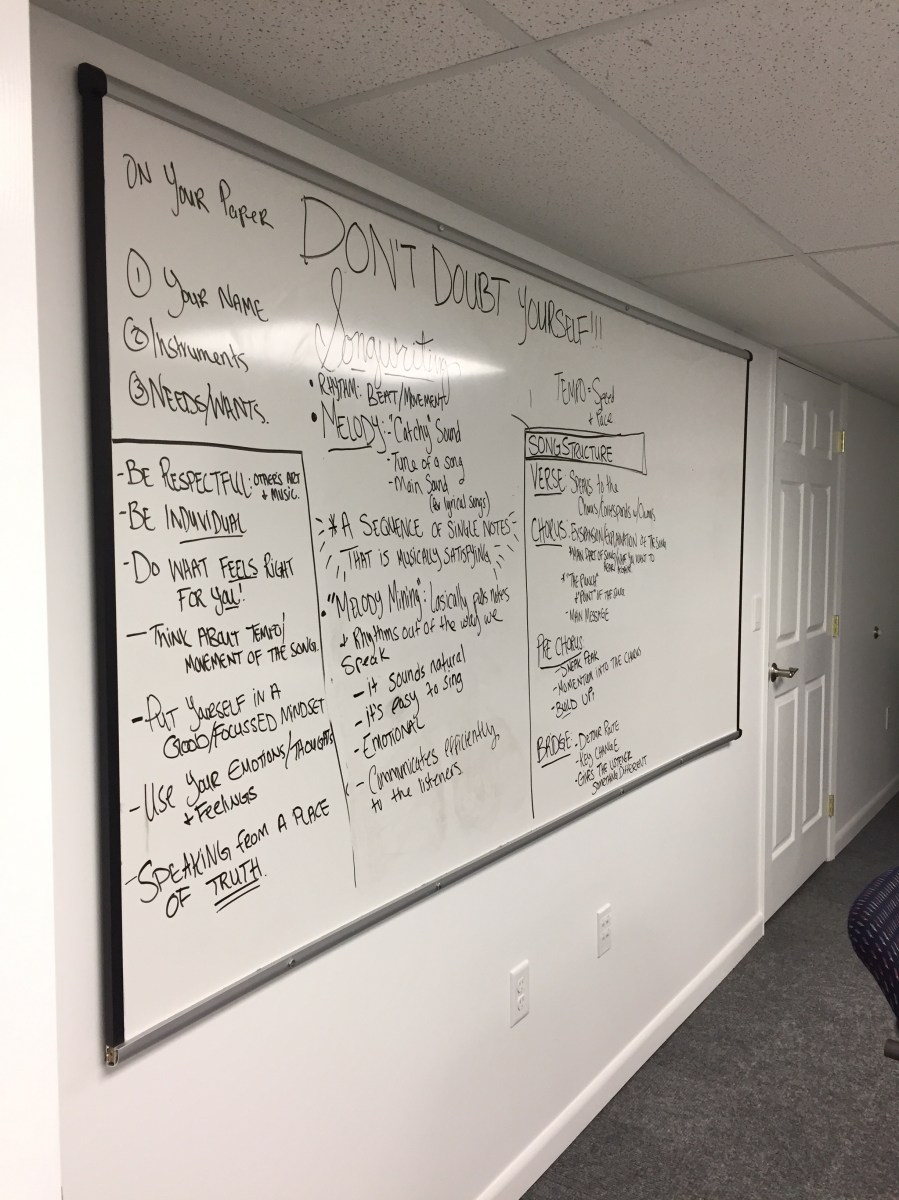 ON YOUR PAPER
① YOUR NAME
② Instruments
③ NEEDS/WANTS.
DON'T DOUBT YOURSELF!!!
- BE RESPECTFUL: OTHER'S ART
+ MUSIC.
- BE INDIVIDUAL
- DO WHAT FEELS RIGHT
FOR YOU!
- THINK ABOUT TEMPO/
MOVEMENT OF THE SONG.
- PUT YOURSELF IN A
GOOD/FOCUSSED MINDSET
- USE YOUR EMOTIONS/THOUGHTS
+ FEELINGS
- SPEAKING FROM A PLACE
OF TRUTH.
Songwriting
• RHYTHM: BEAT/MOVEMENT
• MELODY: - "Catchy" Sound
- Tune of a song
- Main Sound
(for lyrical songs)
* A SEQUENCE OF SINGLE NOTES
THAT IS MUSICALLY SATISFYING
• "MELODY Mining": basically pulls notes
+ Rhythms out of the way we
Speak
- it sounds natural
- it's easy to sing
- EMOTIONAL
- Communicates efficiently
to the listeners
TEMPO = Speed
+ Pace
SONG STRUCTURE
VERSE: SPEAKS to the
Chorus/Corresponds w/Chorus
CHORUS: EXPANSION/EXPLANATION OF THE SONG
* MAIN PART OF SONG/WHAT YOU WANT TO
HEAR
* "THE PUNCH"
* "POINT" OF THE
- MAIN MESSAGE
PRE CHORUS
- SNEAK PEAK
- MOMENTUM INTO THE CHORUS
- BUILD UP!
BRIDGE: - DETOUR ROUTE
- KEY CHANGE
- GIVES THE LISTENER
SOMETHING DIFFERENT